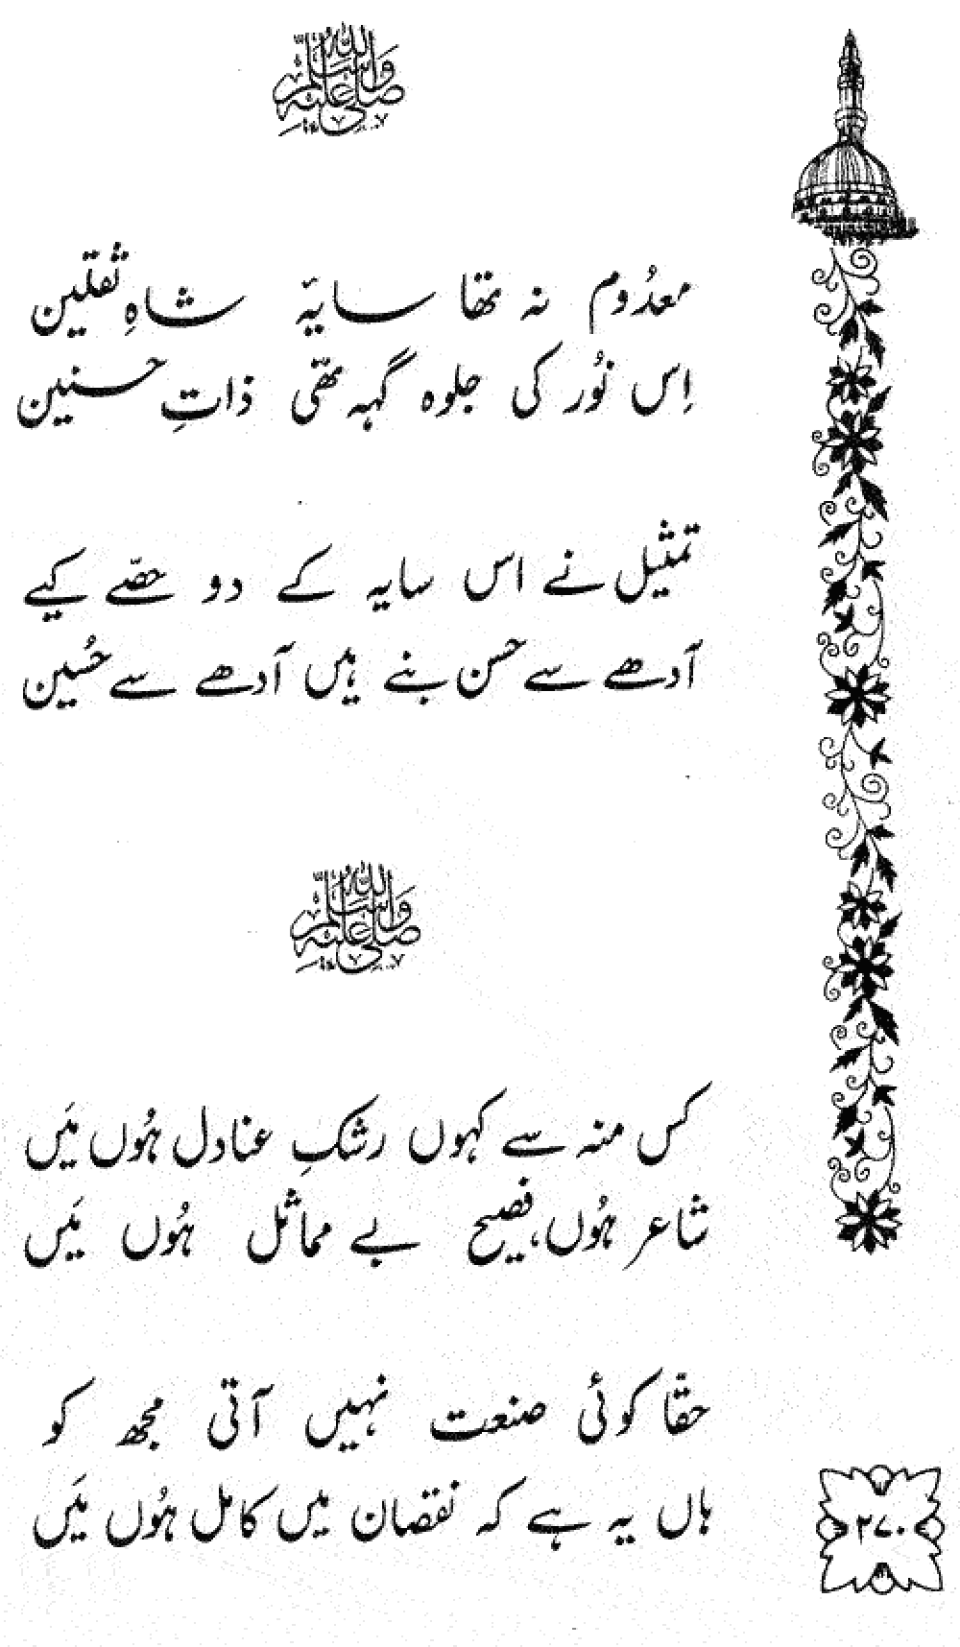 صلی اللہ علیہ وآلہ وسلم
معدُوم نہ تھا سایۂ شاہِ ثقلین
اِس نُور کی جلوہ گہہ تھی ذاتِ حسنین
تمثیل نے اس سایہ کے دو حصّے کیے
آدھے سے حسن بنے ہیں آدھے سے حُسین
صلی اللہ علیہ وآلہ وسلم
کس منہ سے کہوں رشکِ عنادل ہُوں مَیں
شاعر ہُوں، فصیح بے مماثل ہُوں مَیں
حقّا کوئی صنعت نہیں آتی مجھ کو
ہاں یہ ہے کہ نقصان میں کامل ہُوں مَیں
۲۷۰